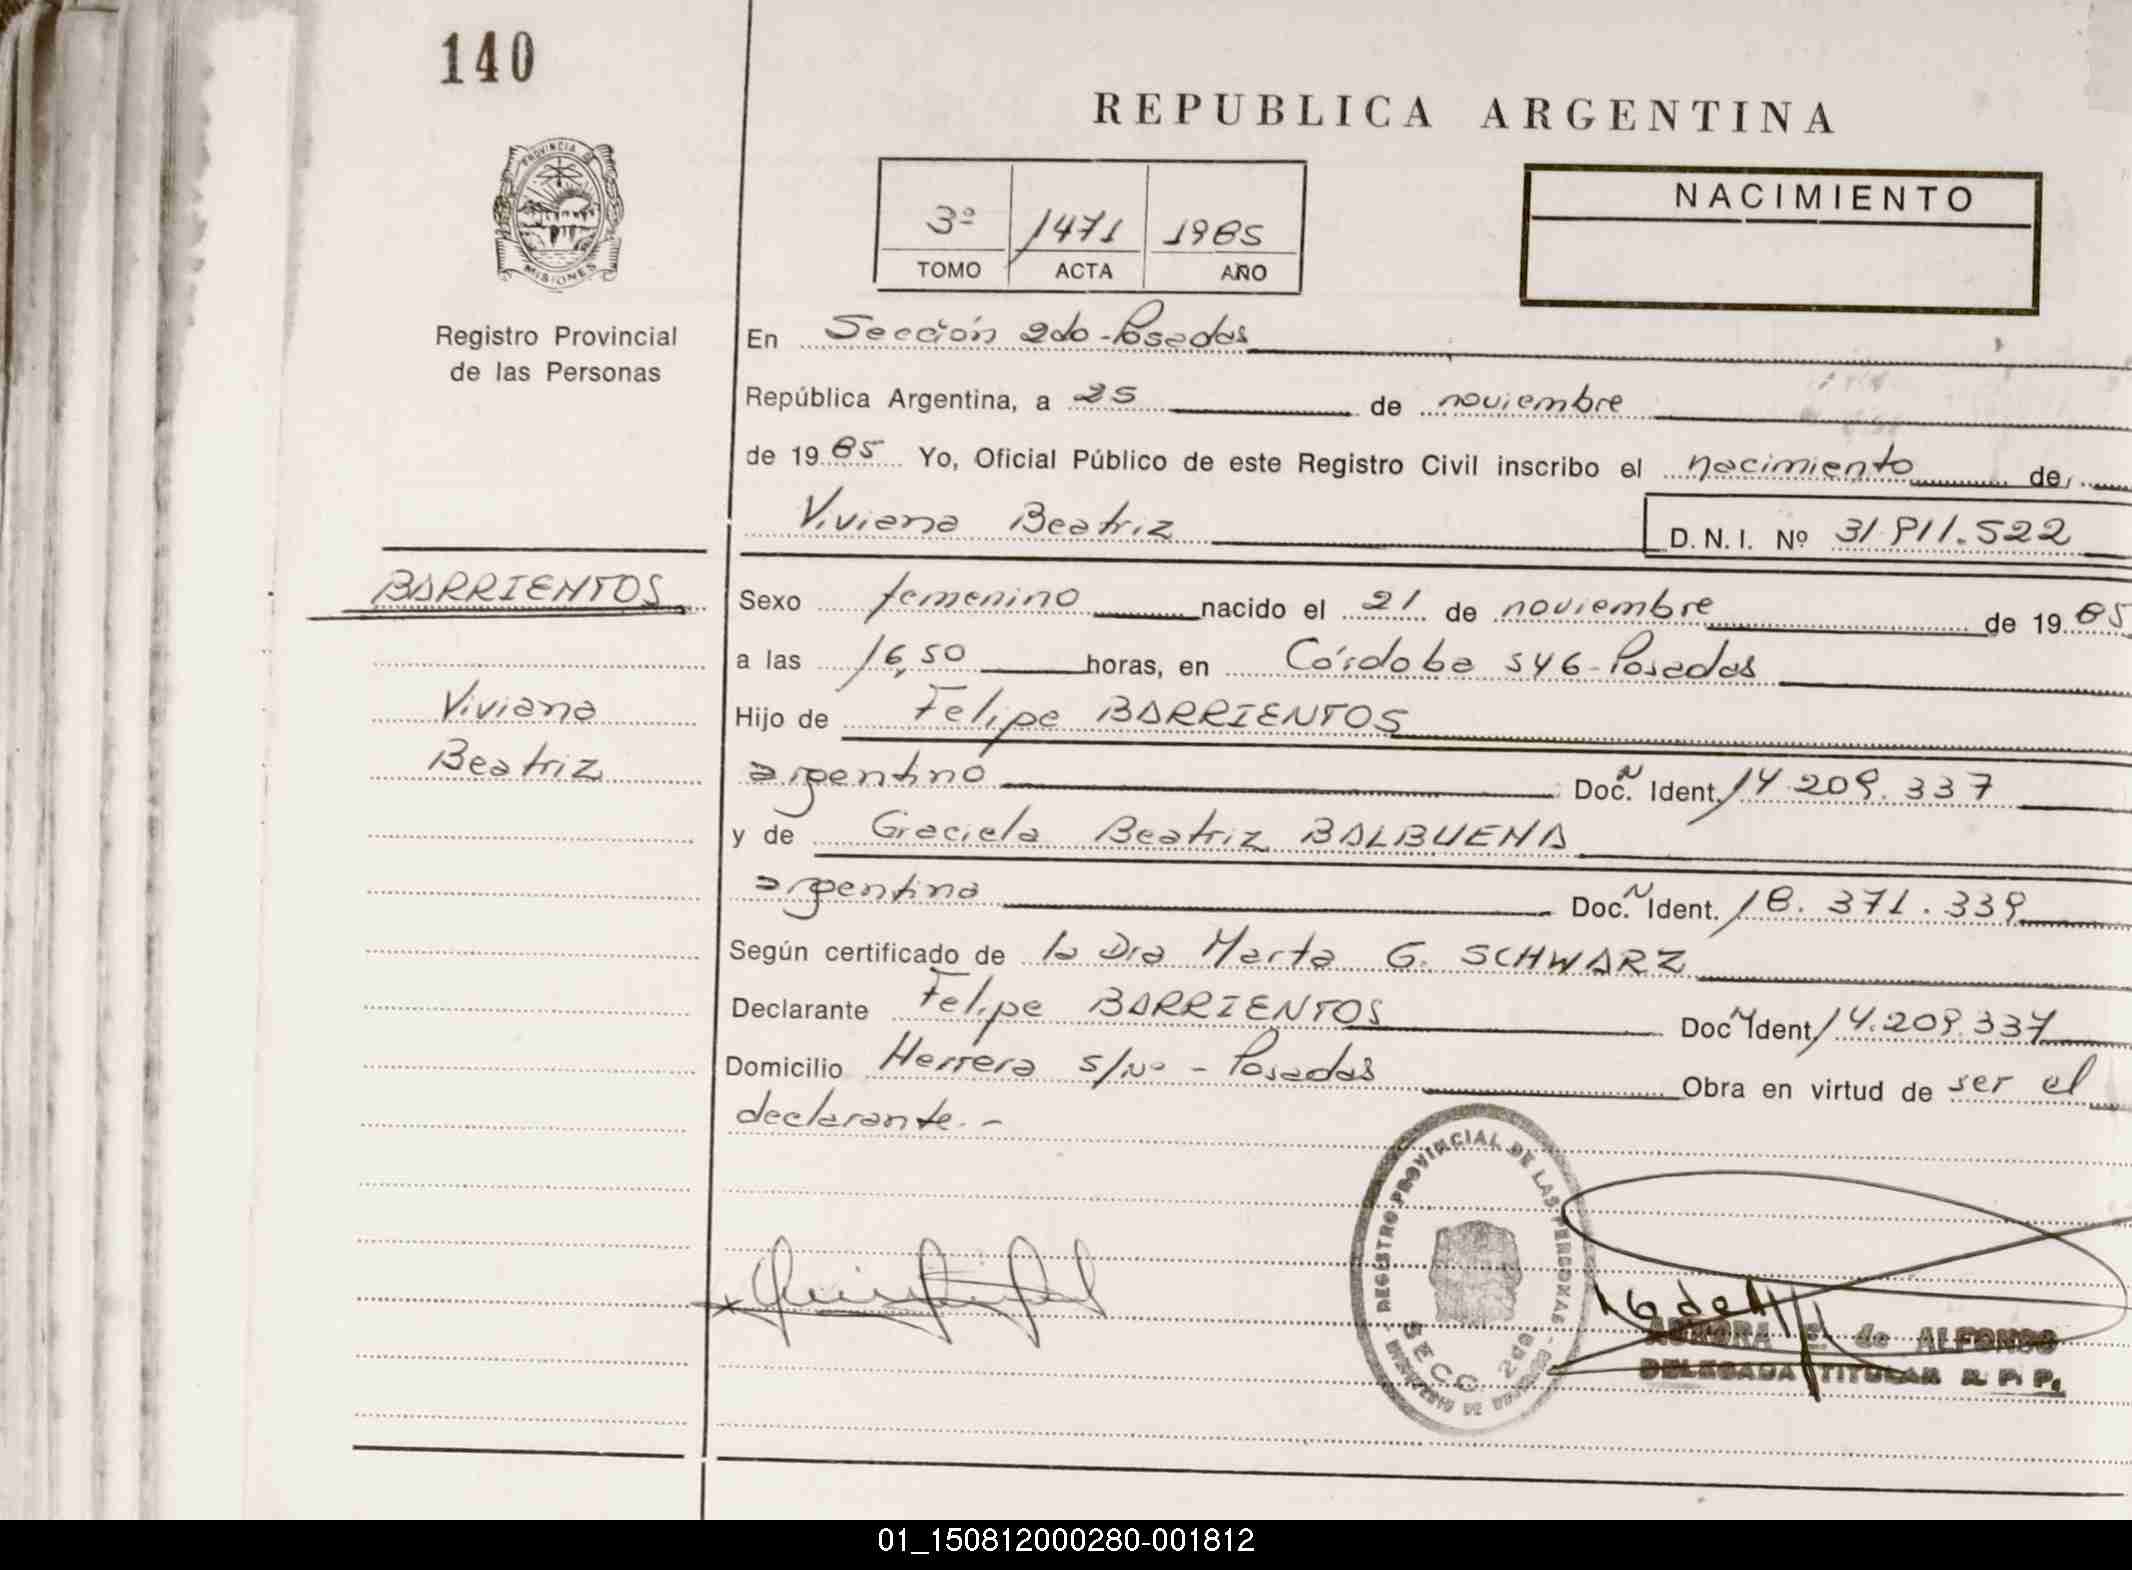 140
REPUBLICA ARGENTINA
PROVINCIA DE
MISIONES
Registro Provincial
de las Personas
3º 1471 1985
TOMO ACTA AÑO
NACIMIENTO
En Sección 2do-Posadas
República Argentina, a 25 de noviembre
de 1985 Yo, Oficial Público de este Registro Civil inscribo el nacimiento de
Viviana Beatriz D. N. I. Nº 31.911.522
BARRIENTOS
Viviana
Beatriz
Sexo femenino nacido el 21 de noviembre de 1985
a las 16,50 horas, en Córdoba 546-Posadas
Hijo de Felipe BARRIENTOS
argentino Doc. N Ident. 14.209.337
y de Graciela Beatriz BALBUENA
argentina Doc. N Ident. 18.371.339
Según certificado de la Dra Marta G. SCHWARZ
Declarante Felipe BARRIENTOS Doc N Ident. 14.209.337
Domicilio Herrera s/Nº - Posadas Obra en virtud de ser el
declarante.-
REGISTRO PROVINCIAL DE LAS PERSONAS
SECC 2da
AURORA E. de ALFONSO
DELEGADA TITULAR R. P. P.
01_150812000280-001812